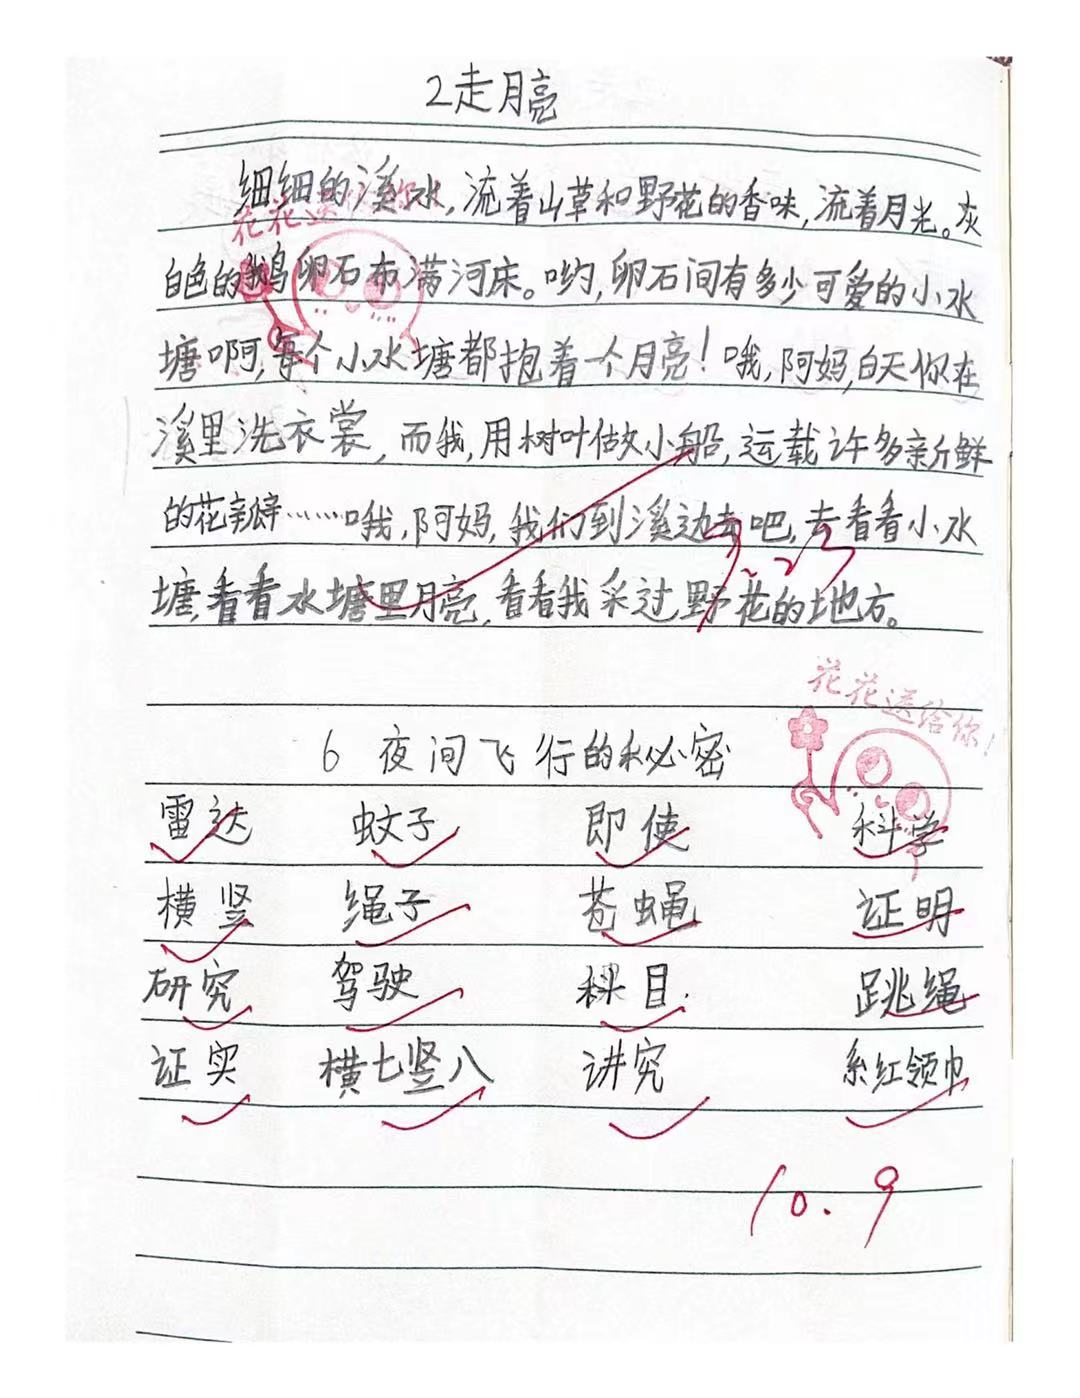 2走月亮
细细的溪水,流着山草和野花的香味,流着月光。灰
白色的鹅卵石布满河床。哟,卵石间有多少可爱的小水
塘啊,每个小水塘都抱着一个月亮!哦,阿妈,白天你在
溪里洗衣裳,而我,用树叶做小船,运载许多新鲜
的花瓣……哦,阿妈,我们到溪边去吧,去看看小水
塘,看看水塘里月亮,看看我采过野花的地方。
花花送给你!
花花送给你!
6 夜间飞行的秘密
雷达 蚊子 即使 科学
横竖 绳子 苍蝇 证明
研究 驾驶 科目 跳绳
证实 横七竖八 讲究 系红领巾
10.9